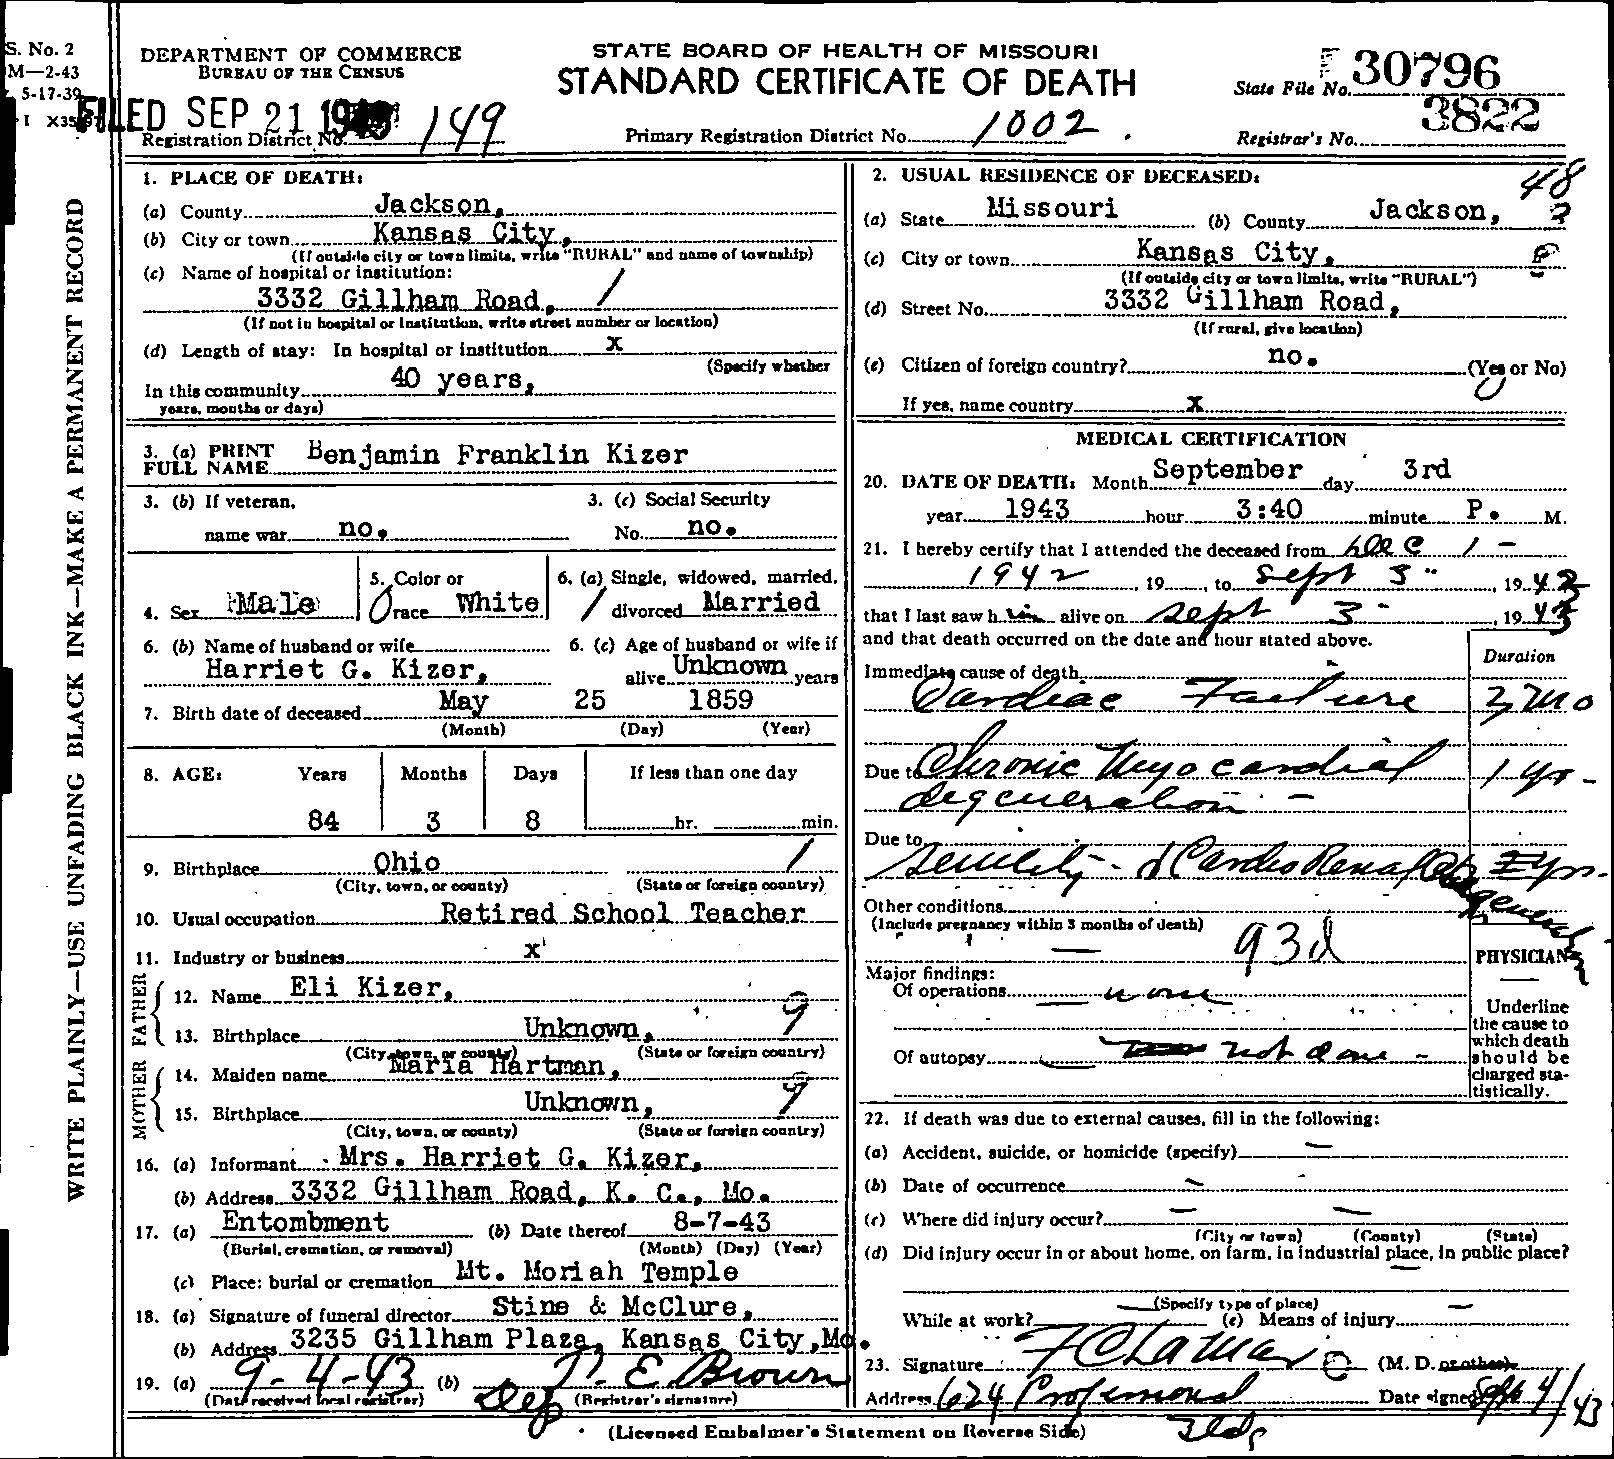 S. No. 2
M—2-43
5-17-39
I X35
WRITE PLAINLY—USE UNFADING BLACK INK—MAKE A PERMANENT RECORD
DEPARTMENT OF COMMERCE
BUREAU OF THE CENSUS
STATE BOARD OF HEALTH OF MISSOURI
STANDARD CERTIFICATE OF DEATH
State File No. 30796
FILED SEP 21 1943
Registration District No. 149
Primary Registration District No. 1002.
Registrar's No. 3822
1. PLACE OF DEATH:
(a) County Jackson,
(b) City or town Kansas City,
(If outside city or town limits, write "RURAL" and name of township)
(c) Name of hospital or institution:
3332 Gillham Road, /
(If not in hospital or institution, write street number or location)
(d) Length of stay: In hospital or institution x
(Specify whether
In this community 40 years,
years, months or days)
3. (a) PRINT FULL NAME Benjamin Franklin Kizer
3. (b) If veteran,
name war no.
3. (c) Social Security
No. no.
4. Sex Male
5. Color or
race White
6. (a) Single, widowed, married,
/ divorced Married
6. (b) Name of husband or wife
Harriet G. Kizer,
6. (c) Age of husband or wife if
alive Unknown years
7. Birth date of deceased May 25 1859
(Month) (Day) (Year)
8. AGE: Years Months Days If less than one day
84 3 8 hr. min.
9. Birthplace Ohio /
(City, town, or county) (State or foreign country)
10. Usual occupation Retired School Teacher
11. Industry or business x
FATHER
12. Name Eli Kizer,
13. Birthplace Unknown, 9
(City, town, or county) (State or foreign country)
MOTHER
14. Maiden name Maria Hartman,
15. Birthplace Unknown, 9
(City, town, or county) (State or foreign country)
16. (a) Informant Mrs. Harriet G. Kizer,
(b) Address 3332 Gillham Road, K. C., Mo.
17. (a) Entombment (b) Date thereof 8-7-43
(Burial, cremation, or removal) (Month) (Day) (Year)
(c) Place: burial or cremation Mt. Moriah Temple
18. (a) Signature of funeral director Stine & McClure,
(b) Address 3235 Gillham Plaza, Kansas City, Mo.
19. (a) 9-4-43 (b) E. Brown
(Date received local registrar) Dep (Registrar's signature)
2. USUAL RESIDENCE OF DECEASED: 48
(a) State Missouri (b) County Jackson,
(c) City or town Kansas City,
(If outside city or town limits, write "RURAL")
(d) Street No. 3332 Gillham Road,
(If rural, give location)
(e) Citizen of foreign country? no. (Yes or No)
If yes, name country x
MEDICAL CERTIFICATION
20. DATE OF DEATH: Month September day 3rd
year 1943 hour 3:40 minute P. M.
21. I hereby certify that I attended the deceased from Dec 1 -
1942, 19 , to Sept 3, 1943
that I last saw him alive on Sept 3, 1943
and that death occurred on the date and hour stated above.
Duration
Immediate cause of death
Cardiac Failure 3 mo
Due to Chronic Myocardial 1 yr-
degeneration -
Due to
Senility - & Cardio Renal degeneration yrs.
Other conditions
(Include pregnancy within 3 months of death)
93d
PHYSICIAN
Major findings:
Of operations none
Of autopsy not done -
Underline
the cause to
which death
should be
charged sta-
tistically.
22. If death was due to external causes, fill in the following:
(a) Accident, suicide, or homicide (specify) —
(b) Date of occurrence —
(c) Where did injury occur? — —
(City or town) (County) (State)
(d) Did injury occur in or about home, on farm, in industrial place, in public place?
—
(Specify type of place)
While at work? — (e) Means of injury —
23. Signature F C Lamar (M. D. or other)
Address 624 Professional Bldg Date signed Sept 4/43
(Licensed Embalmer's Statement on Reverse Side)